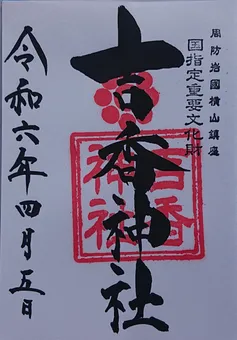 周防岩國横山鎮座
国指定重要文化財
吉香神社
吉香神社
令和六年四月五日